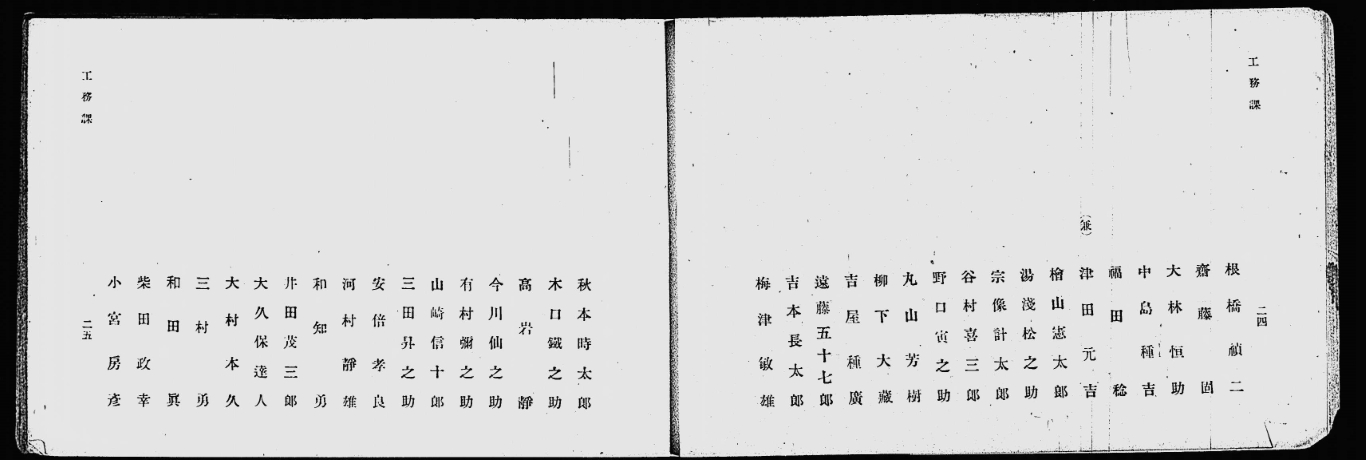 工務課
二四
根橋禎二
齋藤固
大林恒助
中島種吉
福田稔
（兼）
津田元吉
檜山憲太郎
湯淺松之助
宗像計太郎
谷村喜三郎
野口寅之助
丸山芳樹
柳下大藏
吉屋種廣
遠藤五十七郎
吉本長太郎
梅津敏雄
秋本時太郎
木口鐵之助
高岩靜
今川仙之助
有村彌之助
山崎信十郎
三田昇之助
安倍孝良
河村靜雄
和知勇
井田茂三郎
大久保達人
大村本久
三村勇
和田眞
柴田政幸
小宮房彥
工務課
二五